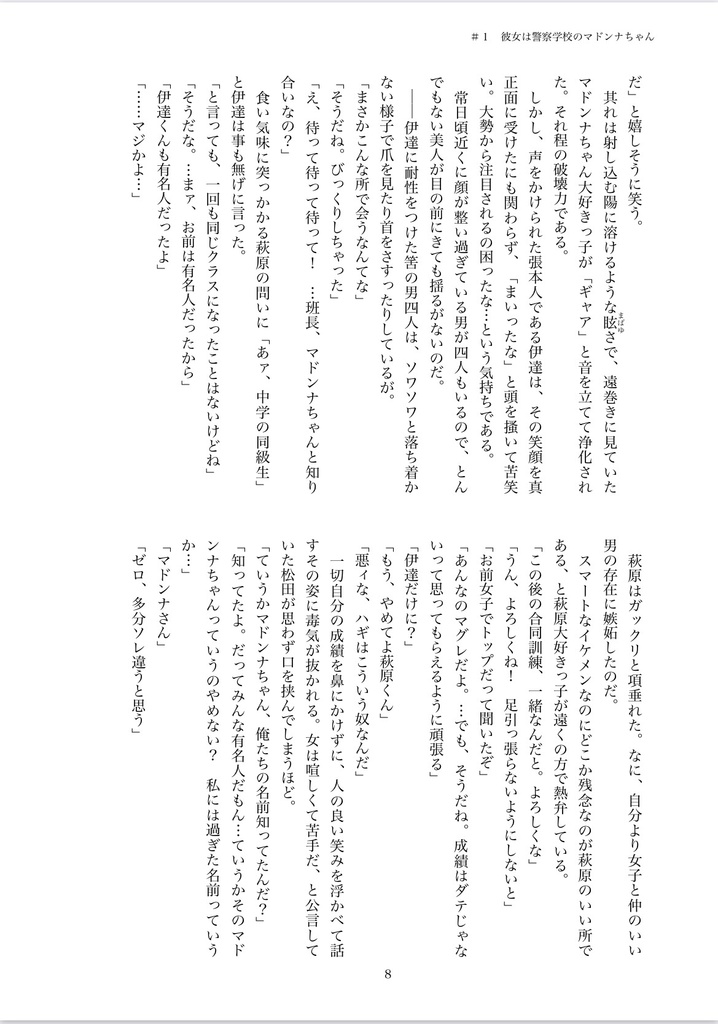 ＃１　彼女は警察学校のマドンナちゃん
だ」と嬉しそうに笑う。
　其れは射し込む陽に溶けるような眩まばゆさで、遠巻きに見ていた
マドンナちゃん大好きっ子が「ギャア」と音を立てて浄化され
た。それ程の破壊力である。
　しかし、声をかけられた張本人である伊達は、その笑顔を真
正面に受けたにも関わらず、「まいったな」と頭を掻いて苦笑
い。大勢から注目されるの困ったな…という気持ちである。
　常日頃近くに顔が整い過ぎている男が四人もいるので、とん
でもない美人が目の前にきても揺るがないのだ。
　――伊達に耐性をつけた筈の男四人は、ソワソワと落ち着か
ない様子で爪を見たり首をさすったりしているが。
「まさかこんな所で会うなんてな」
「そうだね。びっくりしちゃった」
「え、待って待って待って！　…班長、マドンナちゃんと知り
合いなの？」
　食い気味に突っかかる萩原の問いに「あァ、中学の同級生」
と伊達は事も無げに言った。
「と言っても、一回も同じクラスになったことはないけどね」
「そうだな。…まァ、お前は有名人だったから」
「伊達くんも有名人だったよ」
「……マジかよ…」
　萩原はガックリと項垂れた。なに、自分より女子と仲のいい
男の存在に嫉妬したのだ。
　スマートなイケメンなのにどこか残念なのが萩原のいい所で
ある、と萩原大好きっ子が遠くの方で熱弁している。
「この後の合同訓練、一緒なんだと。よろしくな」
「うん、よろしくね！　足引っ張らないようにしないと」
「お前女子でトップだって聞いたぞ」
「あんなのマグレだよ。…でも、そうだね。成績はダテじゃな
いって思ってもらえるように頑張る」
「伊達だけに？」
「もう、やめてよ萩原くん」
「悪ィな、ハギはこういう奴なんだ」
　一切自分の成績を鼻にかけずに、人の良い笑みを浮かべて話
すその姿に毒気が抜かれる。女は喧しくて苦手だ、と公言して
いた松田が思わず口を挟んでしまうほど。
「ていうかマドンナちゃん、俺たちの名前知ってたんだ？」
「知ってたよ。だってみんな有名人だもん…ていうかそのマド
ンナちゃんっていうのやめない？　私には過ぎた名前っていう
か…」
「マドンナさん」
「ゼロ、多分ソレ違うと思う」
8